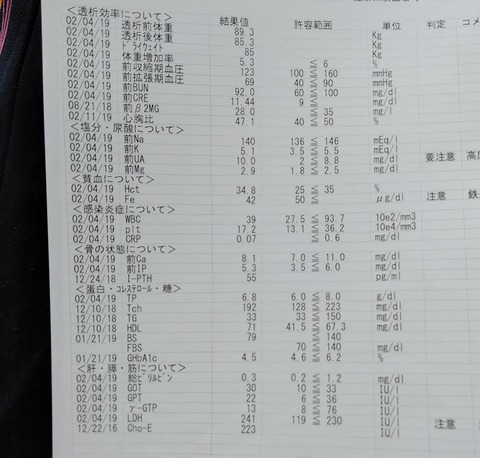 結果値 許容範囲 単位 判定 コメ
＜透析効率について＞
02/04/19 透析前体重 89.3 Kg
02/04/19 透析後体重 85.3 Kg
02/04/19 ﾄﾞﾗｲｳｪｲﾄ 85 Kg
02/04/19 体重増加率 5.3 ≦ 6 %
02/04/19 前収縮期血圧 123 100 ≦ 160 mmHg
02/04/19 前拡張期血圧 69 40 ≦ 90 mmHg
02/04/19 前BUN 92.0 60 ≦ 100 mg/dl
02/04/19 前CRE 11.44 9 ≦ mg/dl
08/21/18 前β2MG 28.0 ≦ 35 mg/l
02/11/19 心胸比 47.1 40 ≦ 50 %
＜塩分・尿酸について＞
02/04/19 前Na 140 136 ≦ 146 mEq/l
02/04/19 前K 5.1 3.5 ≦ 5.5 mEq/l
02/04/19 前UA 10.0 2 ≦ 8.8 mg/dl 要注意 高尿
02/04/19 前Mg 2.9 1.8 ≦ 2.5 mg/dl
＜貧血について＞
02/04/19 Hct 34.8 25 ≦ 35 %
02/04/19 Fe 42 50 ≦ μg/dl 注意 鉄
＜感染炎症について＞
02/04/19 WBC 39 27.5 ≦ 93.7 10e2/mm3
02/04/19 plt 17.2 13.1 ≦ 36.2 10e4/mm3
02/04/19 CRP 0.07 ≦ 0.6 mg/dl
＜骨の状態について＞
02/04/19 前Ca 8.1 7.0 ≦ 11.0 mg/dl
02/04/19 前IP 5.3 3.5 ≦ 6.0 mg/dl
12/24/18 I-PTH 55 pg/ml
＜蛋白・ｺﾚｽﾃﾛｰﾙ・糖＞
02/04/19 TP 6.8 6.0 ≦ 8.0 g/dl
12/10/18 Tch 192 128 ≦ 223 mg/dl
12/10/18 TG 33 33 ≦ 150 mg/dl
12/10/18 HDL 71 41.5 ≦ 67.3 mg/dl
01/21/19 BS 79 ≦ 140
FBS 70 ≦ 140 mg/dl
01/21/19 GHbA1c 4.5 4.6 ≦ 6.2 %
＜肝・膵・筋について＞
02/04/19 総ﾋﾞﾘﾙﾋﾞﾝ 0.3 0.2 ≦ 1.2 mg/dl
02/04/19 GOT 30 10 ≦ 33 IU/l
02/04/19 GPT 22 6 ≦ 36 IU/l
02/04/19 γ-GTP 13 8 ≦ 76 IU/l
02/04/19 LDH 241 119 ≦ 230 IU/l 注意
12/22/16 Cho-E 223 IU/l